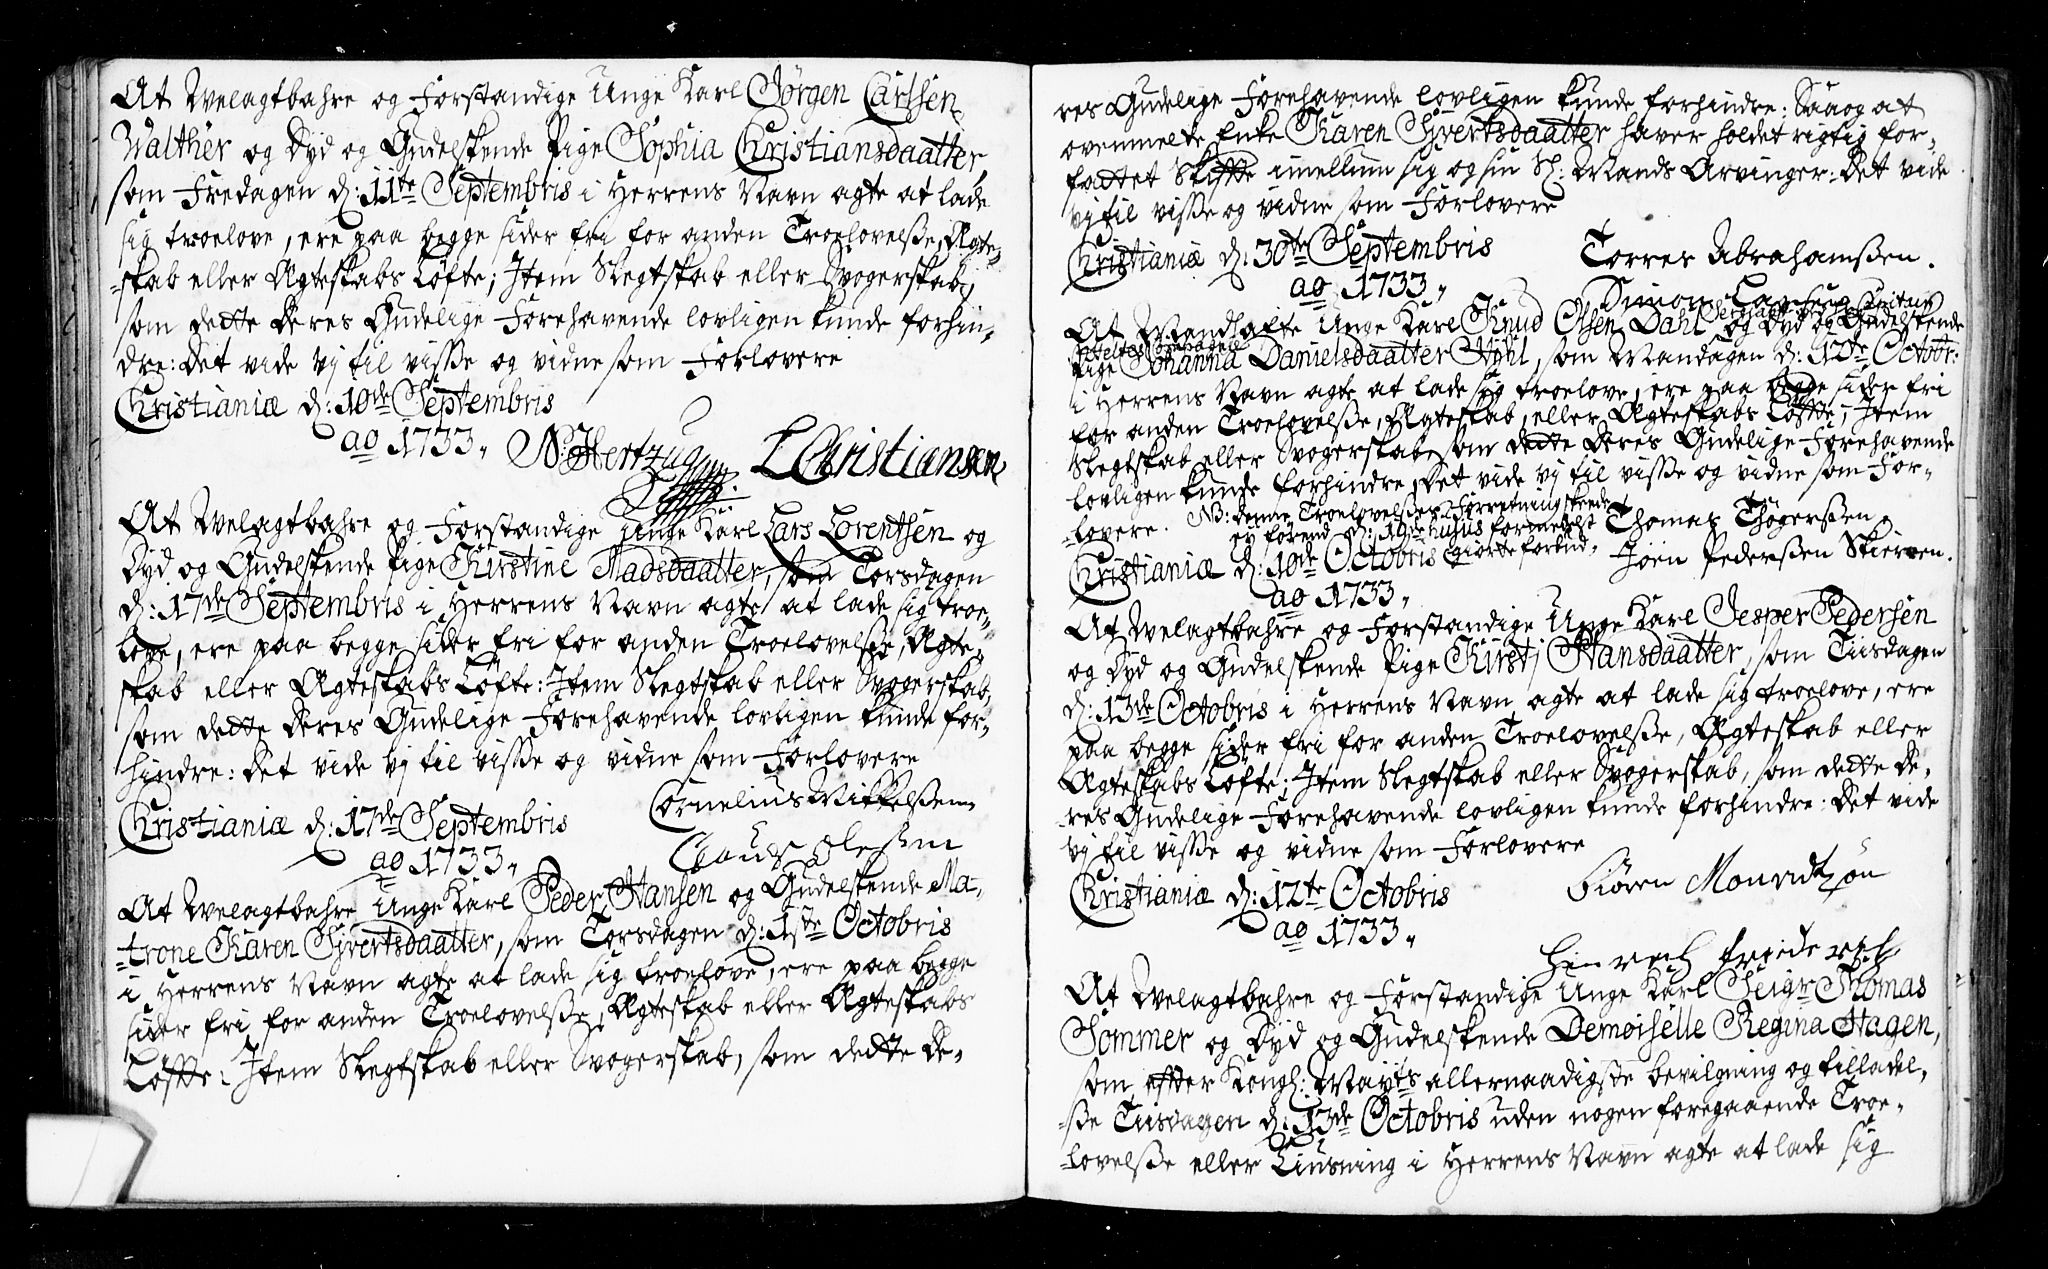 At Velagtbahre og Forstandige Unge Karl Jørgen Carlsen
Walther og Dyd og Gudelskende Pige Sophia Christiansdaatter
som Fredagen d: 11te Septembris i Herrens Navn agte at lade
sig troelove, ere paa begge sider fri for anden Troelovelße, Ægte-
-skab eller Ægteskabs Løfte; Item Slegtskab eller Svogerskab,
som dette Deres Gudelige Forehavende lovligen kunde forhin-
dre: Det vide vj til visße og vidne som Forlovere
Christianiæ d: 10de Septembris
ao 1733. N: Hertzug LChristiansen
At Velagtbahre og Forstandige Unge Karl Lars Lorentsen og
Dyd og Gudelskende Pige Kirstine Madsdaatter, som Torsdagen
d: 17de Septembris i Herrens Navn agte at lade sig troe-
love, ere paa begge sider fri for anden Troelovelße, Ægte-
skab eller Ægteskabs Løfte: Item Slegtskab eller Svogerskab,
som dette Deres Gudelige Forehavende lovligen kunde for-
hindre: Det vide vj til visße og vidne som Forlovere
Christianiæ d: 17de Septembris Cornelius Mikkelßen
ao 1733. Claus Olesen
At Velagtbahre Unge Karl Peder Hansen og Gudelskende Ma-
-trone Karen Sjvertsdaatter, som Torsdagen d: 1ste Octobris
i Herrens Navn agte at lade sig troelove, ere paa begge
sider fri for anden Troelovelße, Ægteskab eller Ægteskabs
Løfte: Item Slegtskab eller Svogerskab, som dette De-
res Gudelige Forehavende lovligen kunde forhindre: Saa og at
ovenmelte Enke Karen Sjvertsdaatter haver holdet rigtig for-
fattet Skifte imellum sig og sin Sl: Mands Arvinger: Det vide
vj til visße og vidne som Forlovere
Christianiæ d: 30te Septembris Torrer Abrahamßen.
ao 1733. Simon
At Mandhafte Unge Karl Knud Olsen Dahl og Dyd og Gudelskende
Pige Johanna Danielsdaatter Kyhl, som Mandagen d: 12te Octobr:
i Herrens Navn agte at lade sig troelove, ere paa begge sider fri
for anden Troelovelße, Ægteskab, eller Ægteskabs Løfte; Item
Slegtskab eller Svogerskab, som dette Deres Gudelige Forehavende
lovligen kunde forhindre, Det vide vj til visße og vidne som For-
-lovere. NB: denne Troelovelßes Forretning skeede Thomas Thøgerßen
ej førend d: 19de hujus formedelst
Christianiæ d: 10de Octobris giorte forbud. Joen Pederßen Skierven.
ao 1733.
At Velagtbahre og Forstandige Unge Karl Jesper Pedersen
og Dyd og Gudelskende Pige Kirstj Hansdaatter, som Tiisdagen
d: 13de Octobris i Herrens Navn agte at lade sig troelove, ere
paa begge sider fri for anden Troelovelße, Ægteskab eller
Ægteskabs Løfte; Item Slegtskab eller Svogerskab, som dette De-
res Gudelige Forehavende lovligen kunde forhindre: Det vide
vj til visße og vidne som Forlovere
Christianiæ d: 12te Octobris
ao 1733.
At Velagtbahre og Forstandige Unge Karl Seigr Thomas
Sommer og Dyd og Gudelskende Demoiselle Regina Hagen,
som efter Kongl: Mayts allernaadigste bevilgning og tilladel-
-ße Tiisdagen d: 13de Octobris uden nogen foregaaende Troe-
-lovelße eller Liusning i Herrens Navn agte at lade sig